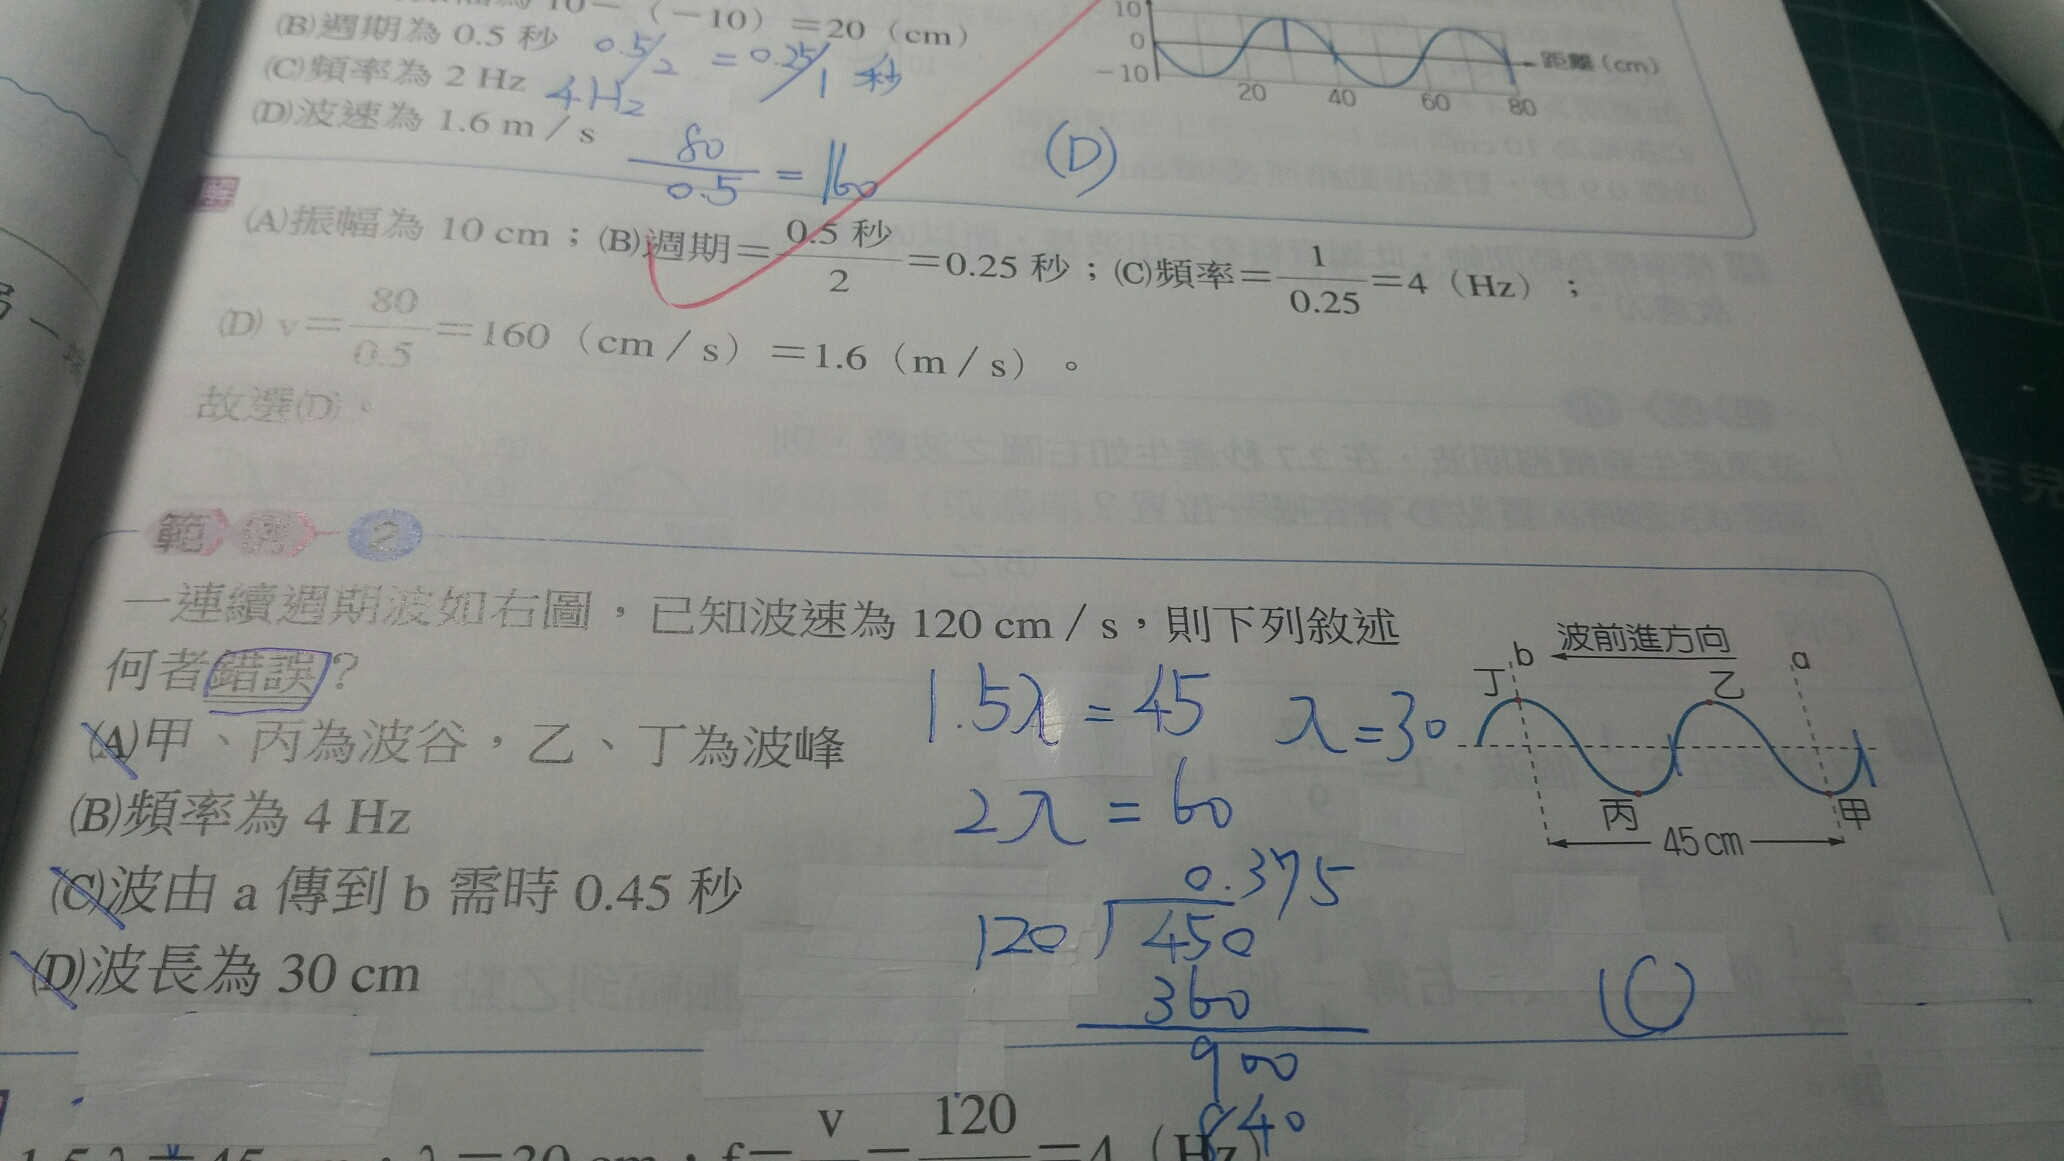 10－（－10）＝20（cm）
(B)週期為 0.5 秒 0.5/2 = 0.25/1 秒
(C)頻率為 2 Hz 4Hz
(D)波速為 1.6 m／s 80/0.5 = 160
10
0
－10
20 40 60 80
距離（cm）
(D)
解
(A)振幅為 10 cm；(B)週期＝0.5 秒/2＝0.25 秒；(C)頻率＝1/0.25＝4（Hz）；
(D) v＝80/0.5＝160（cm／s）＝1.6（m／s）。
故選(D)。
範例 2
一連續週期波如右圖，已知波速為 120 cm／s，則下列敘述
何者錯誤？
(A)甲、丙為波谷，乙、丁為波峰
(B)頻率為 4 Hz
(C)波由 a 傳到 b 需時 0.45 秒
(D)波長為 30 cm
1.5λ = 45 λ = 30
2λ = 60
0.375
120 450
360
900
840
波前進方向
丁 b 乙 a
丙 甲
45 cm
(C)
1.5 λ＝45 cm，λ＝30 cm，f＝v ＝120 ＝4（Hz）